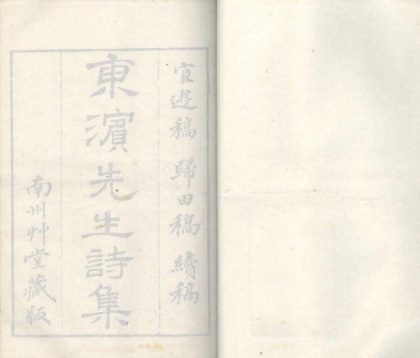 官遊稿 歸田稿 續稿
東濱先生詩集
南州艸堂藏版